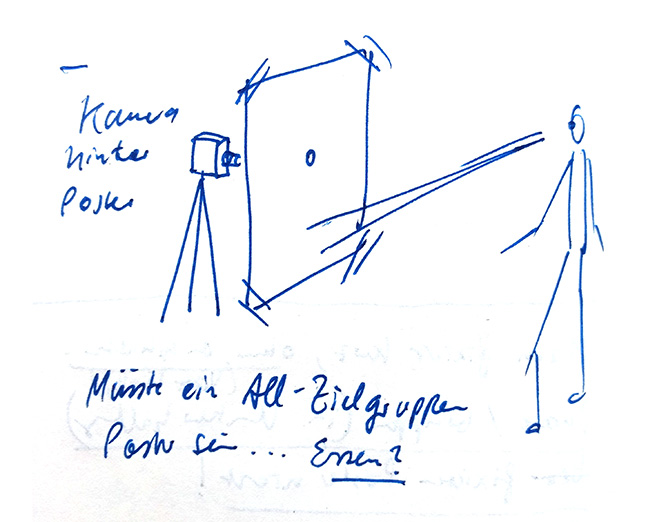 Kamera
hinter
Poster
Müsste ein All-Zielgruppen
Poster sein... Essen?